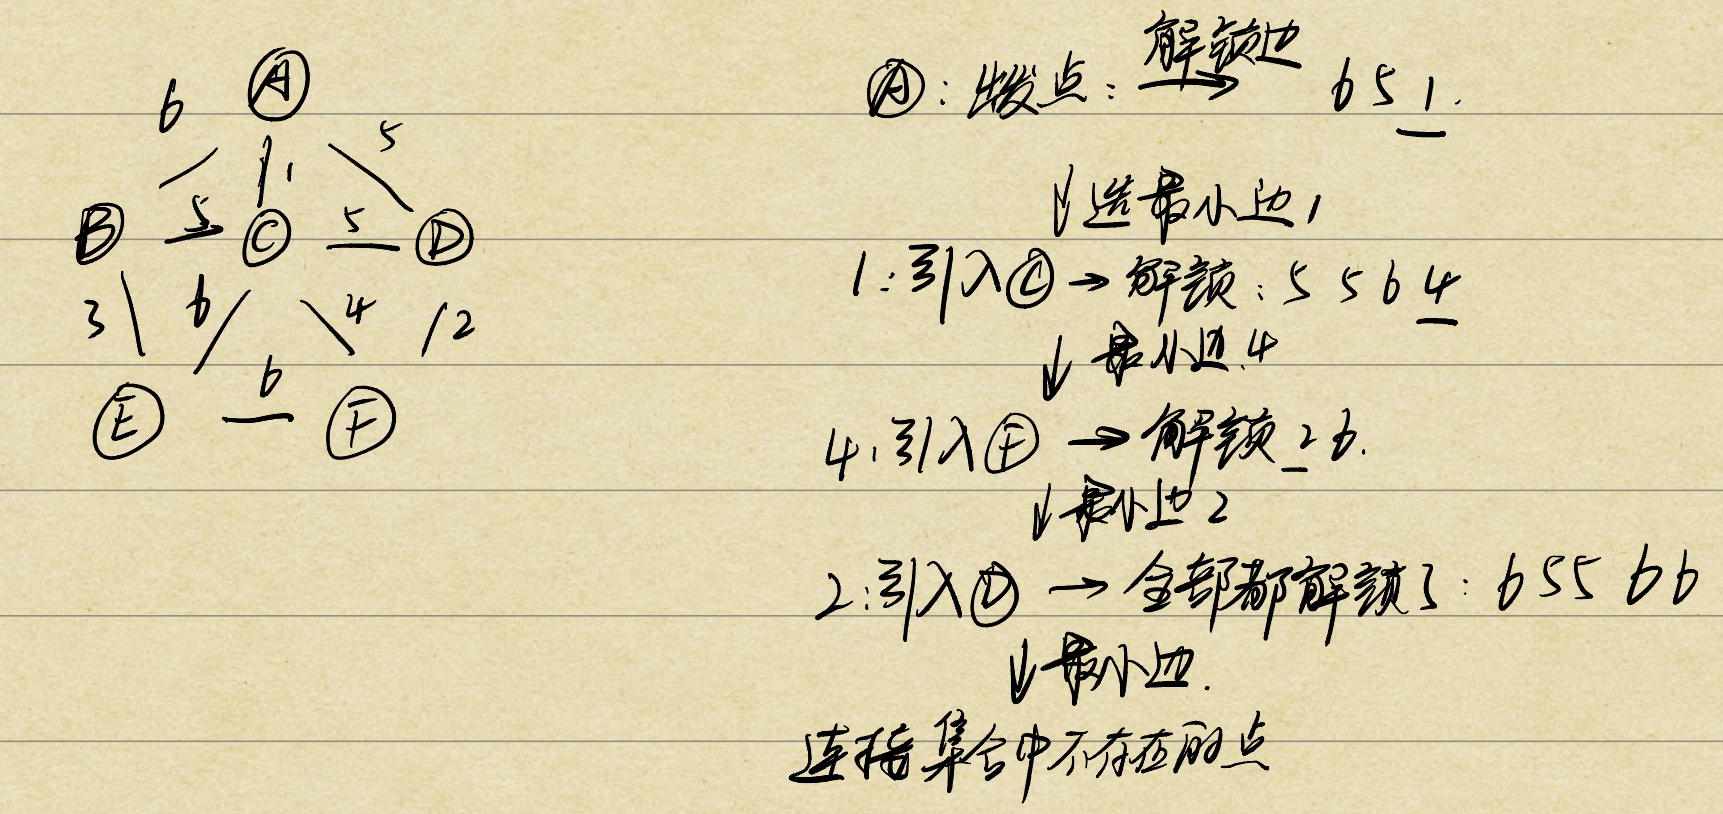 A
6 1 5
B 5 C 5 D
3 6 4 2
E 6 F
A：出发点： 解锁边 → 6 5 1.
↓选最小边1
1：引入C → 解锁：5 5 6 4
↓最小边.4
4.引入F → 解锁 2 6.
↓最小边2
2：引入D → 全部都解锁了：6 5 5 6 6
↓最小边.
连接集合中不存在的点